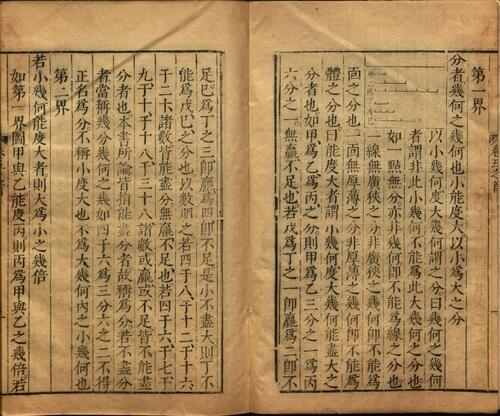 第一界
分者幾何之幾何也小能度大以小為大之分
以小幾何度大幾何謂之分曰幾何之幾何
者謂非此小幾何不能為此大幾何之分也
如一點無分亦非幾何即不能為線之分也
一線無廣狹之分非廣狹之幾何即不能為
面之分也一面無厚薄之分非厚薄之幾何即不能為
體之分也曰能度大者謂小幾何度大幾何能盡大之
分者也如甲為乙為丙之分則甲為乙三分之一為丙
六分之一無贏不足也若戊為丁之一即贏為二即不
足巳為丁之三即贏為四即不足是小不盡大則丁不
能為戊巳之分也以數明之若四于八于十二于十六
于二十諸數皆能盡分無贏不足也若四于六于七于
九于十于十八于三十八諸數或贏或不足皆不能盡
分者也本書所論皆指能盡分者故稱為分若不盡分
者當稱幾分幾何之幾如四于六為三分六之二不得
正名為分不稱小度大也不為大幾何內之小幾何也
第二界
若小幾何能度大者則大為小之幾倍
如第一界圖甲與乙能度丙則丙為甲與乙之幾倍若